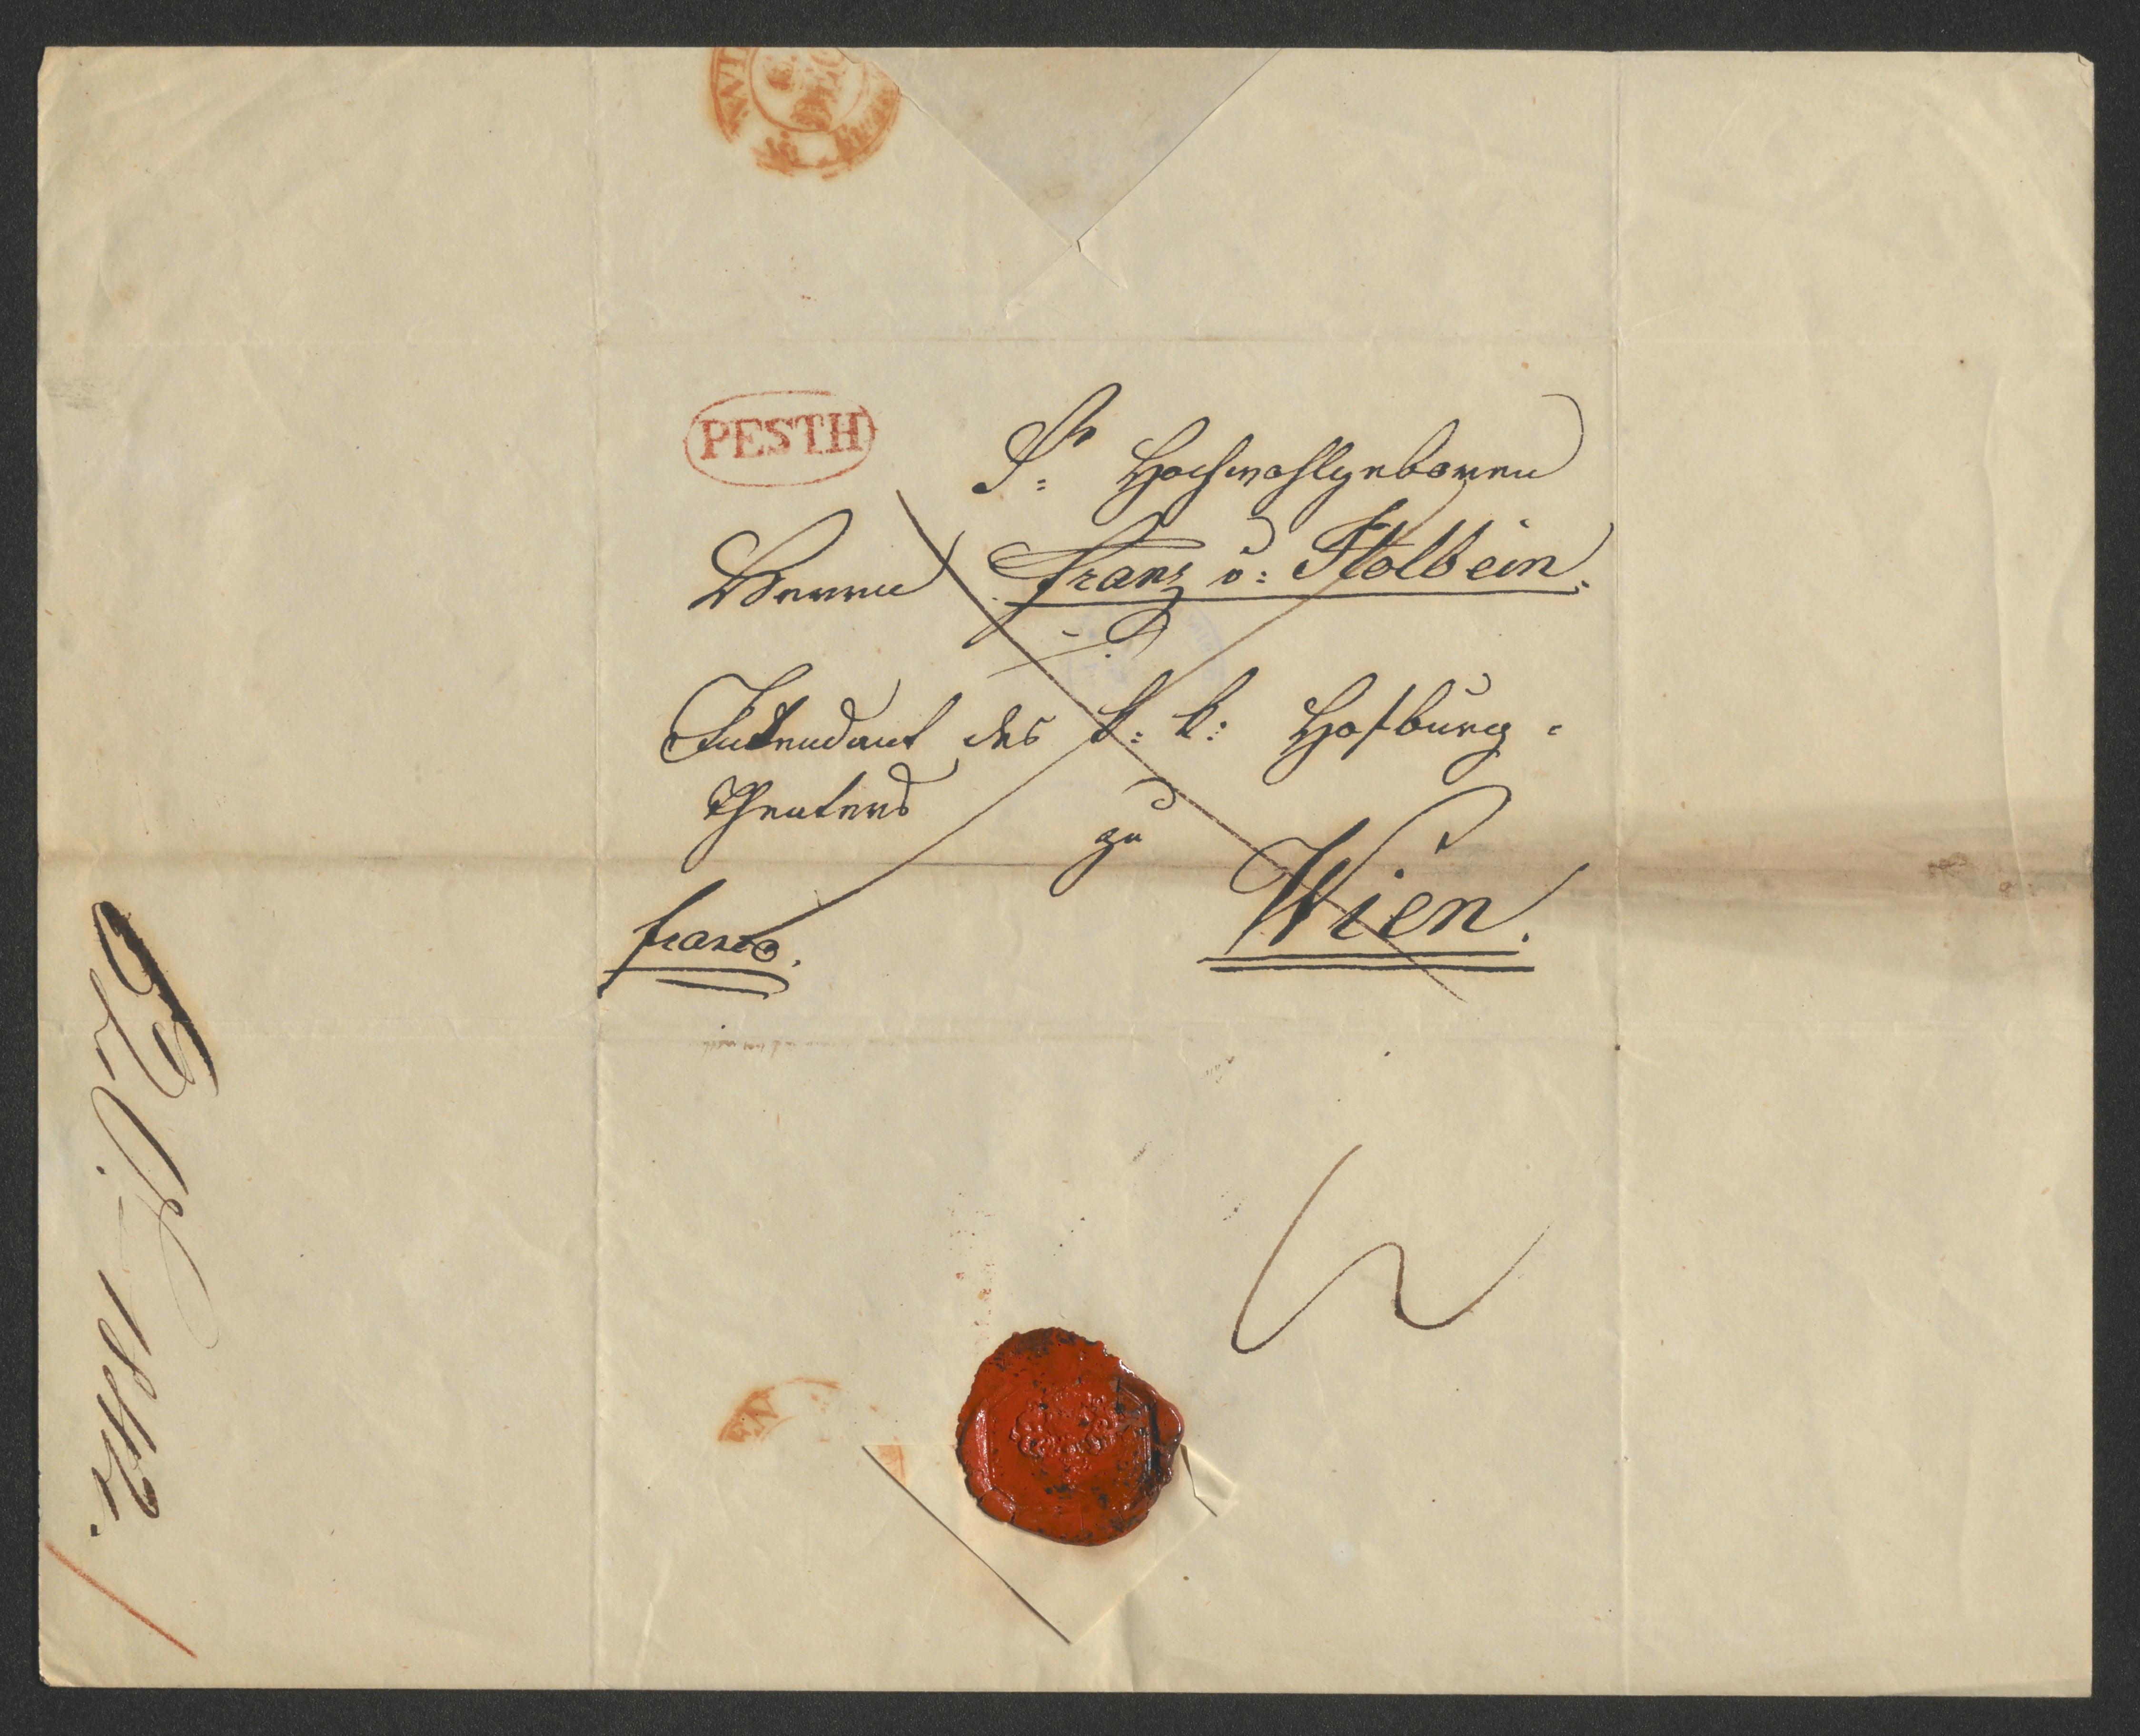 WIEN
PESTH
Sr: Hochwohlgeboren
Herrn Franz v: Holbein.
Intendant des k: k: Hofburg=
theaters
zu
franco. Wien.
EN
1842.